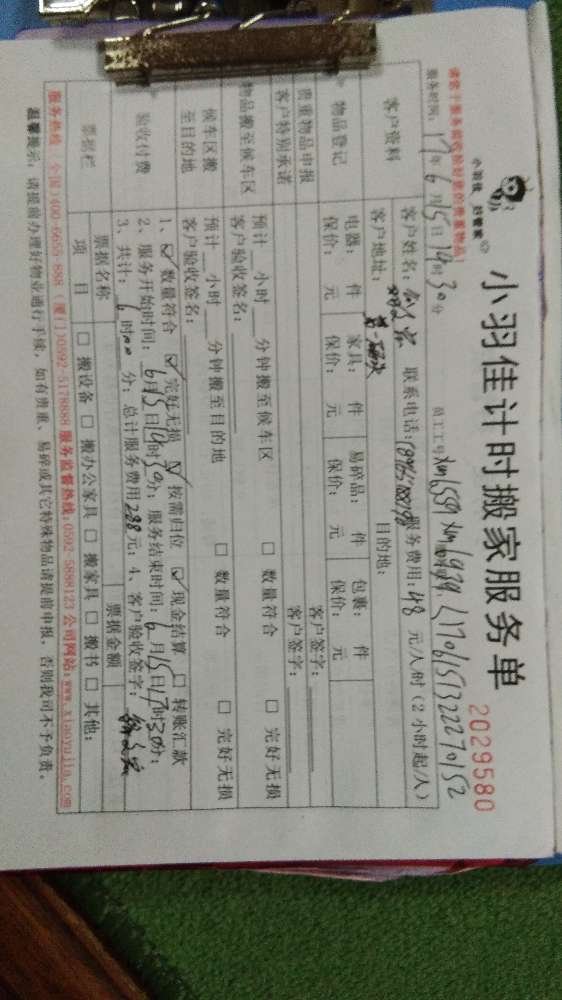 小羽佳 好管家
小羽佳计时搬家服务单
2029580
服务时间：17年6月15日14时30分
员工工号
客户资料
客户姓名：
联系电话：
服务费用：48元/人/时（2小时起/人）
客户地址：
目的地：
物品登记
电器： 件 家具： 件 易碎品： 件 包裹： 件
保价： 元 保价： 元 保价： 元 保价： 元
贵重物品申报
客户签字：
客户特别承诺
客户签字：
物品搬至候车区
预计 小时 分钟搬至候车区 □ 数量符合 □ 完好无损
客户验收签名：
候车区搬至目的地
预计 小时 分钟搬至目的地 □ 数量符合 □ 完好无损
客户验收签名：
验收付费
1、☑ 数量符合 ☑ 完好无损 ☑ 按需归位 ☑ 现金结算 □ 转账汇款
2、服务开始时间：6月15日14时30分；服务结束时间：6月15日17时30分；
3、共计：6时00分；总计服务费用288元；4、客户验收签字：
票据栏
票据名称 票据金额
项目 □ 搬设备 □ 搬办公家具 □ 搬家具 □ 搬书 □ 其他：
服务热线 全国)400-6655-888 (厦门)0592-5178888 服务监督热线:0592-5888123 公司网站:www.xiaoyujia.com
温馨提示：请提前办理好物业通行手续，如有贵重、易碎或其它特殊物品请提前申报，否则我司不予负责。